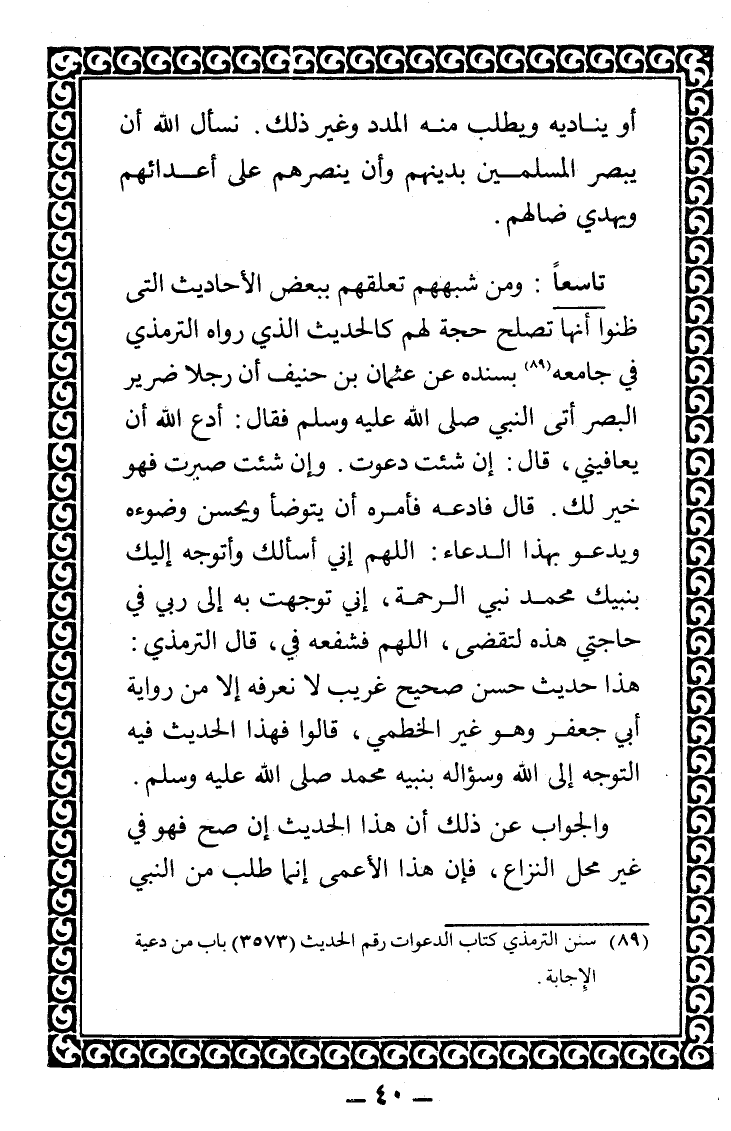 أو يناديه ويطلب منه المدد وغير ذلك. نسأل الله أن
يبصر المسلمين بدينهم وأن ينصرهم على أعدائهم
ويهدي ضالهم.
تاسعاً : ومن شبههم تعلقهم ببعض الأحاديث التى
ظنوا أنها تصلح حجة لهم كالحديث الذي رواه الترمذي
في جامعه(٨٩) بسنده عن عثمان بن حنيف أن رجلا ضرير
البصر أتى النبي صلى الله عليه وسلم فقال: أدع الله أن
يعافيني، قال: إن شئت دعوت. وإن شئت صبرت فهو
خير لك. قال فادعه فأمره أن يتوضأ ويحسن وضوءه
ويدعو بهذا الدعاء: اللهم إني أسألك وأتوجه إليك
بنبيك محمد نبي الرحمة، إني توجهت به إلى ربي في
حاجتي هذه لتقضى، اللهم فشفعه في، قال الترمذي:
هذا حديث حسن صحيح غريب لا نعرفه إلا من رواية
أبي جعفر وهو غير الخطمي، قالوا فهذا الحديث فيه
التوجه إلى الله وسؤاله بنبيه محمد صلى الله عليه وسلم.
والجواب عن ذلك أن هذا الحديث إن صح فهو في
غير محل النزاع، فإن هذا الأعمى إنما طلب من النبي
(٨٩) سنن الترمذي كتاب الدعوات رقم الحديث (٣٥٧٣) باب من دعية
الإجابة.
— ٤٠ —